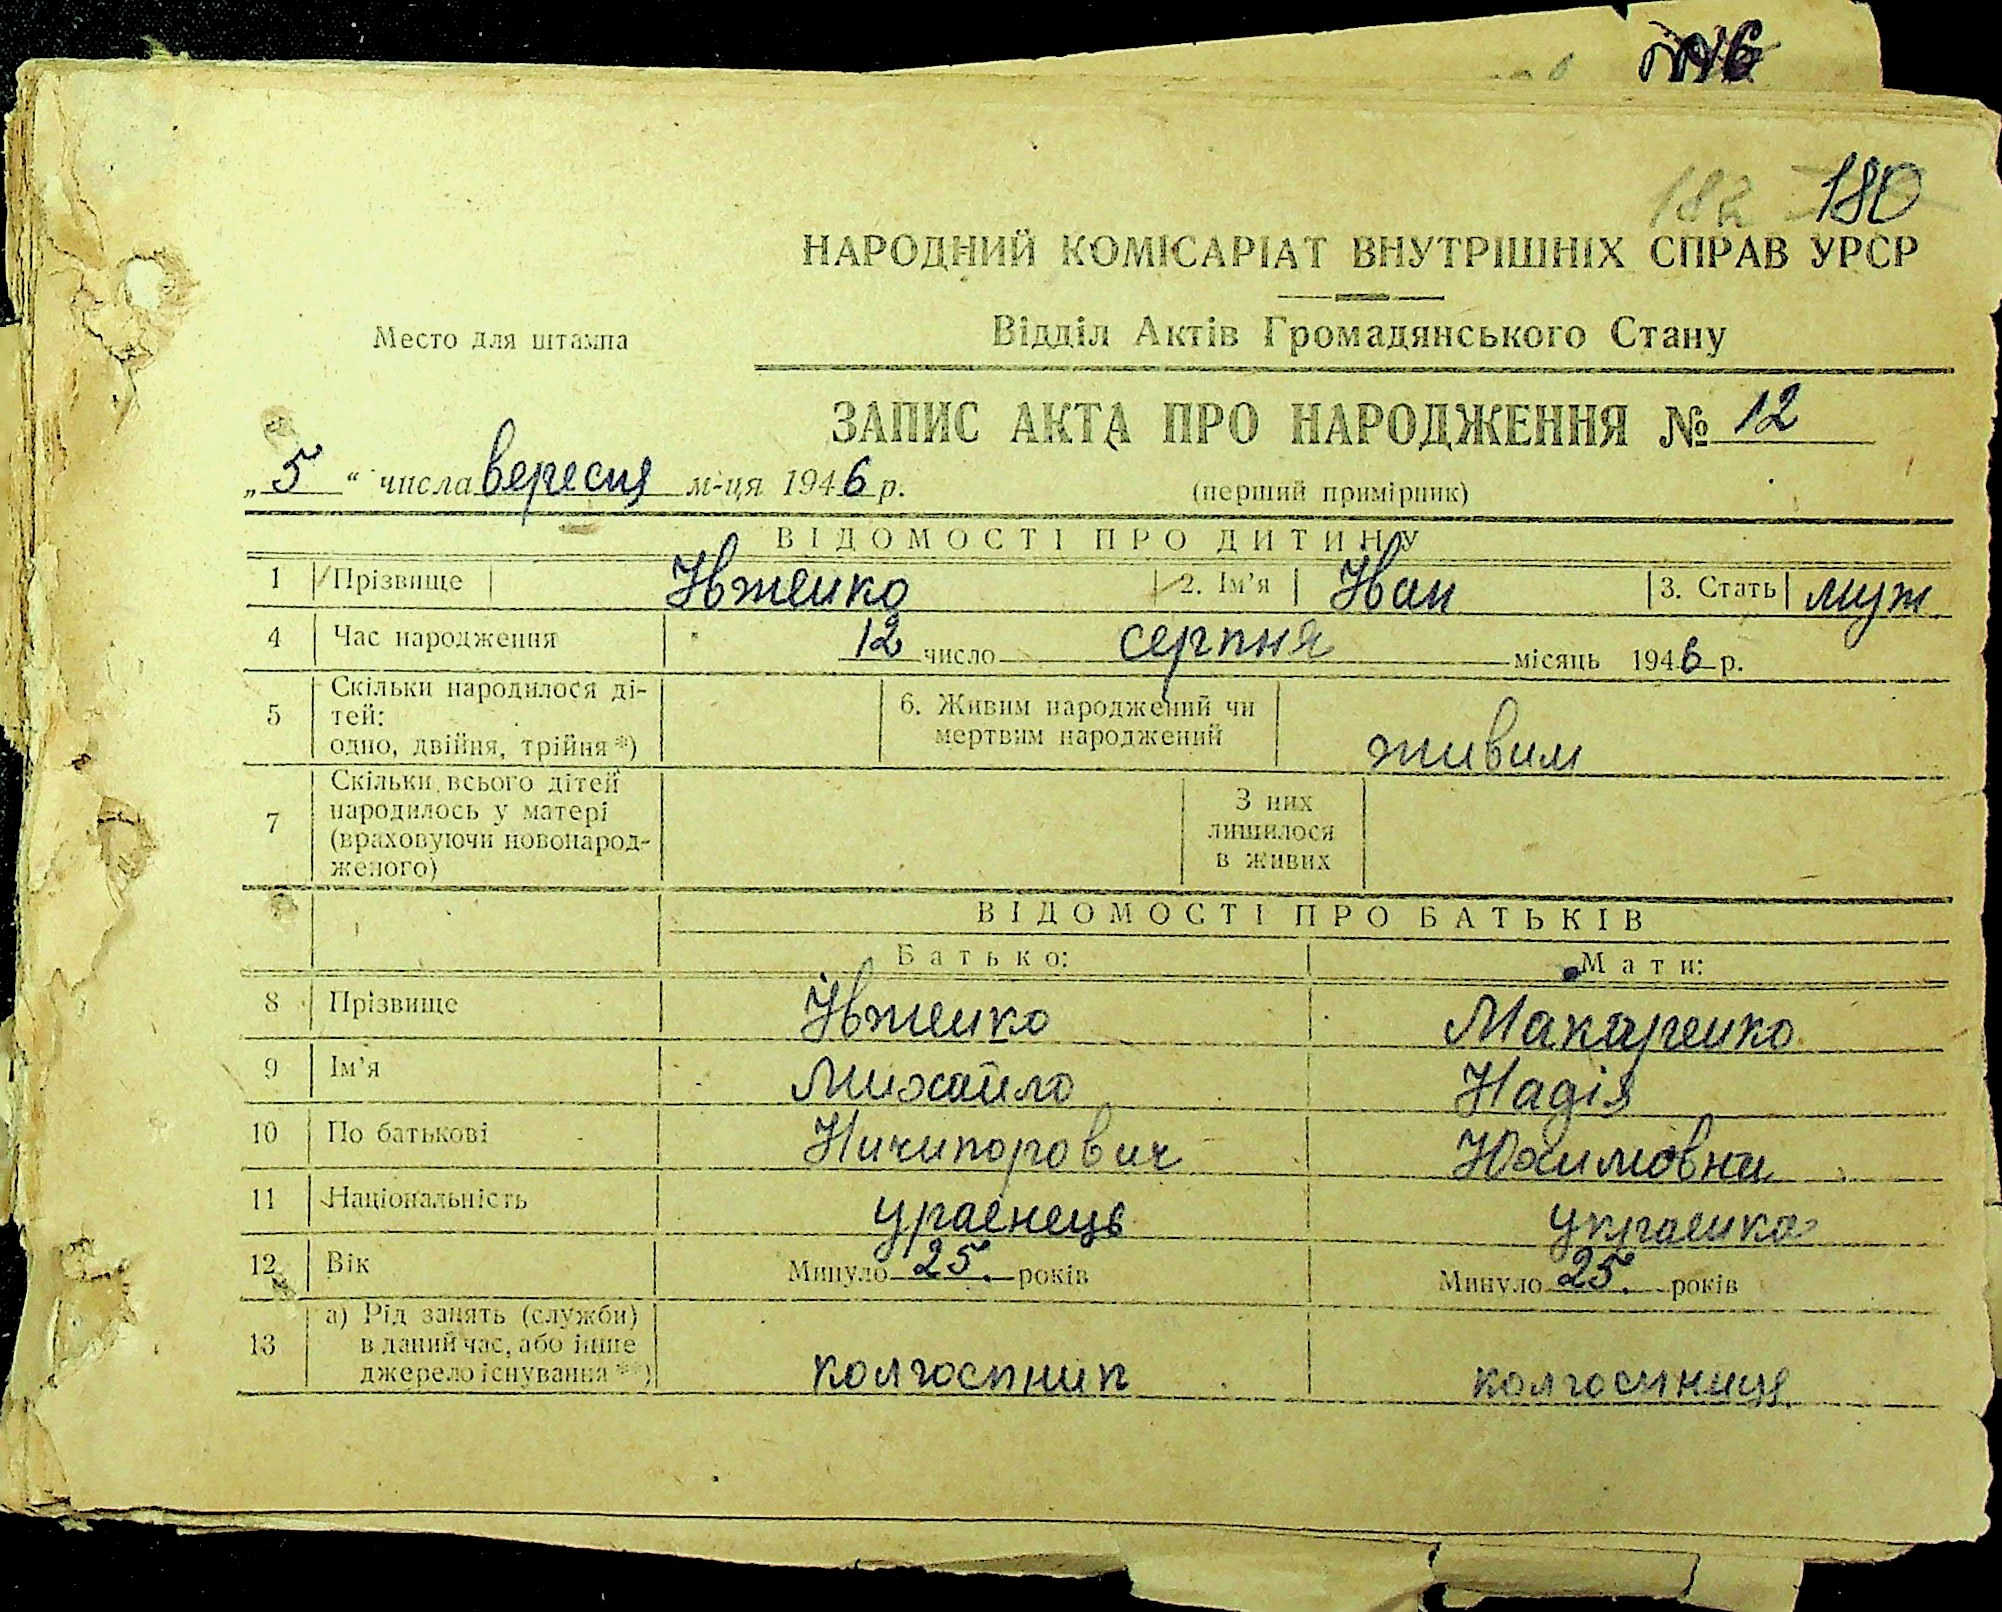 180
НАРОДНИЙ КОМІСАРІАТ ВНУТРІШНІХ СПРАВ УРСР
Место для штампа
Відділ Актів Громадянського Стану
ЗАПИС АКТА ПРО НАРОДЖЕННЯ № 12
„5“ числа вересня м-ця 1946 р.
(перший примірник)
ВІДОМОСТІ ПРО ДИТИНУ
1 Прізвище Івженко 2. Ім'я Іван 3. Стать муж
4 Час народження 12 число серпня місяць 1946 р.
5 Скільки народилося ді-
тей:
одно, двійня, трійня*)
6. Живим народжений чи
мертвим народжений
живим
7 Скільки всього дітей
народилось у матері
(враховуючи новонарод-
женого)
З них
лишилося
в живих
ВІДОМОСТІ ПРО БАТЬКІВ
Батько: Мати:
8 Прізвище Івженко Макаренко
9 Ім'я Михайло Надія
10 По батькові Ничипорович Юхимовна
11 Національність ураєнець украенка
12 Вік Минуло 25. років Минуло 25. років
13 а) Рід занять (служби)
в даний час, або інше
джерело існування**)
колгоспник колгоспниця